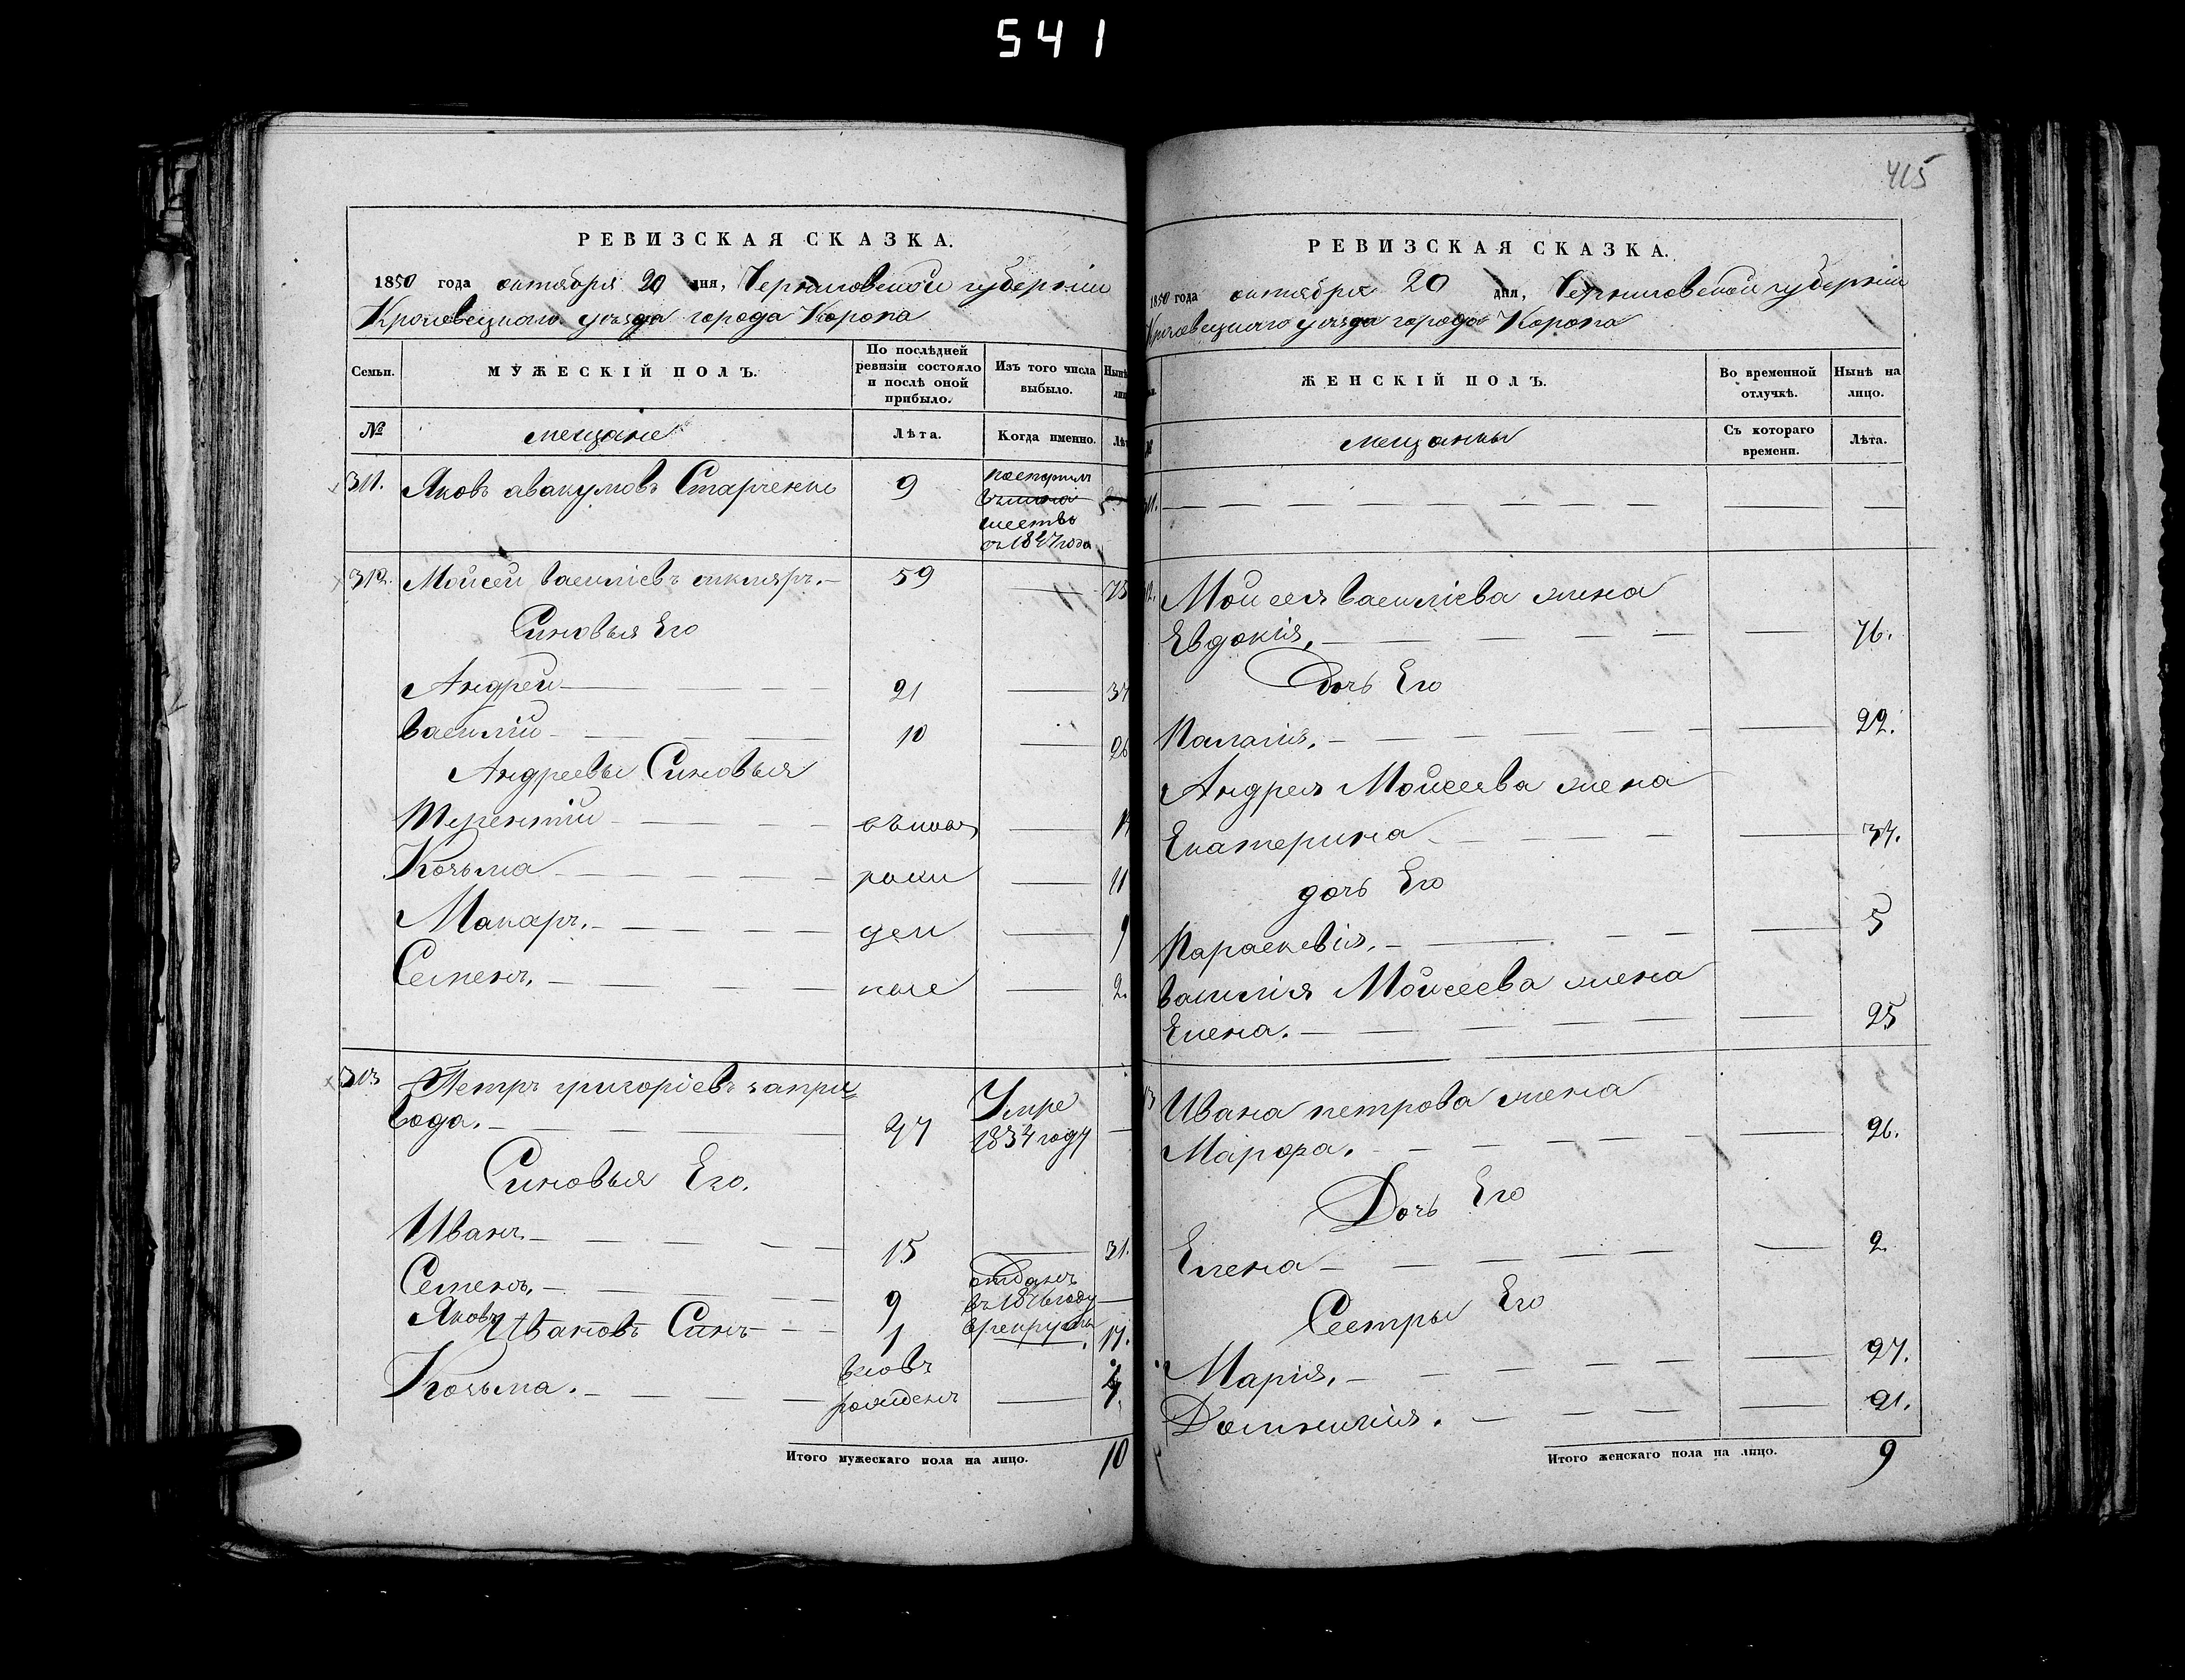 541
415
РЕВИЗСКАЯ СКАЗКА.
1850 года октября 20 дня, Черниговской губерніи
Кролевецкаго уезда города Коропа
Семьи. МУЖЕСКІЙ ПОЛЪ. По послѣдней ревизіи состояло и послѣ оной прибыло. Изъ того числа выбыло. Нынѣ
№ мещане Лѣта. Когда именно.
311. Яковъ авакумовъ Старченко 9 поступил
шество
съ 1847 года
312. Мойсей василіевъ шкляръ. 59 75
Синовья Его
Андрей 21 37
василий 10 26
Андреевы Синовья
Терентій вьнов
Козьма рожи 11
Макаръ. ден 9
Семенъ. ные 2.
313 Петръ григоріевъ запри
вода. 47 Умре 1834 году
Синовья Его.
Иванъ. 15 31.
Семенъ. 9 отданъ въ 1846 году в рекруты
Яковъ Ивановъ Синъ 1 17.
Козьма. вновь рожденъ
Итого мужескаго пола на лицо. 10
РЕВИЗСКАЯ СКАЗКА.
1850 года октября 20 дня, Черниговской губерніи
Кролевецкаго уезда города Коропа
ЖЕНСКІЙ ПОЛЪ. Во временной отлучкѣ. Нынѣ на лицо.
мещанки Съ котораго времени. Лѣта.
Мойсея василіева жена
Евдокия. 76.
Дочь Его
Палагия. 22.
Андрея Мойсеева жена
Екатерина 34.
дочь Его
Параскевія. 5
василия Мойсеева жена
Елена. 25
Ивана петрова жена
Марфа. 26.
Дочь Его
Елена 2.
Сестры Его
Марія. 27.
Домникия. 21.
Итого женскаго пола на лицо. 9